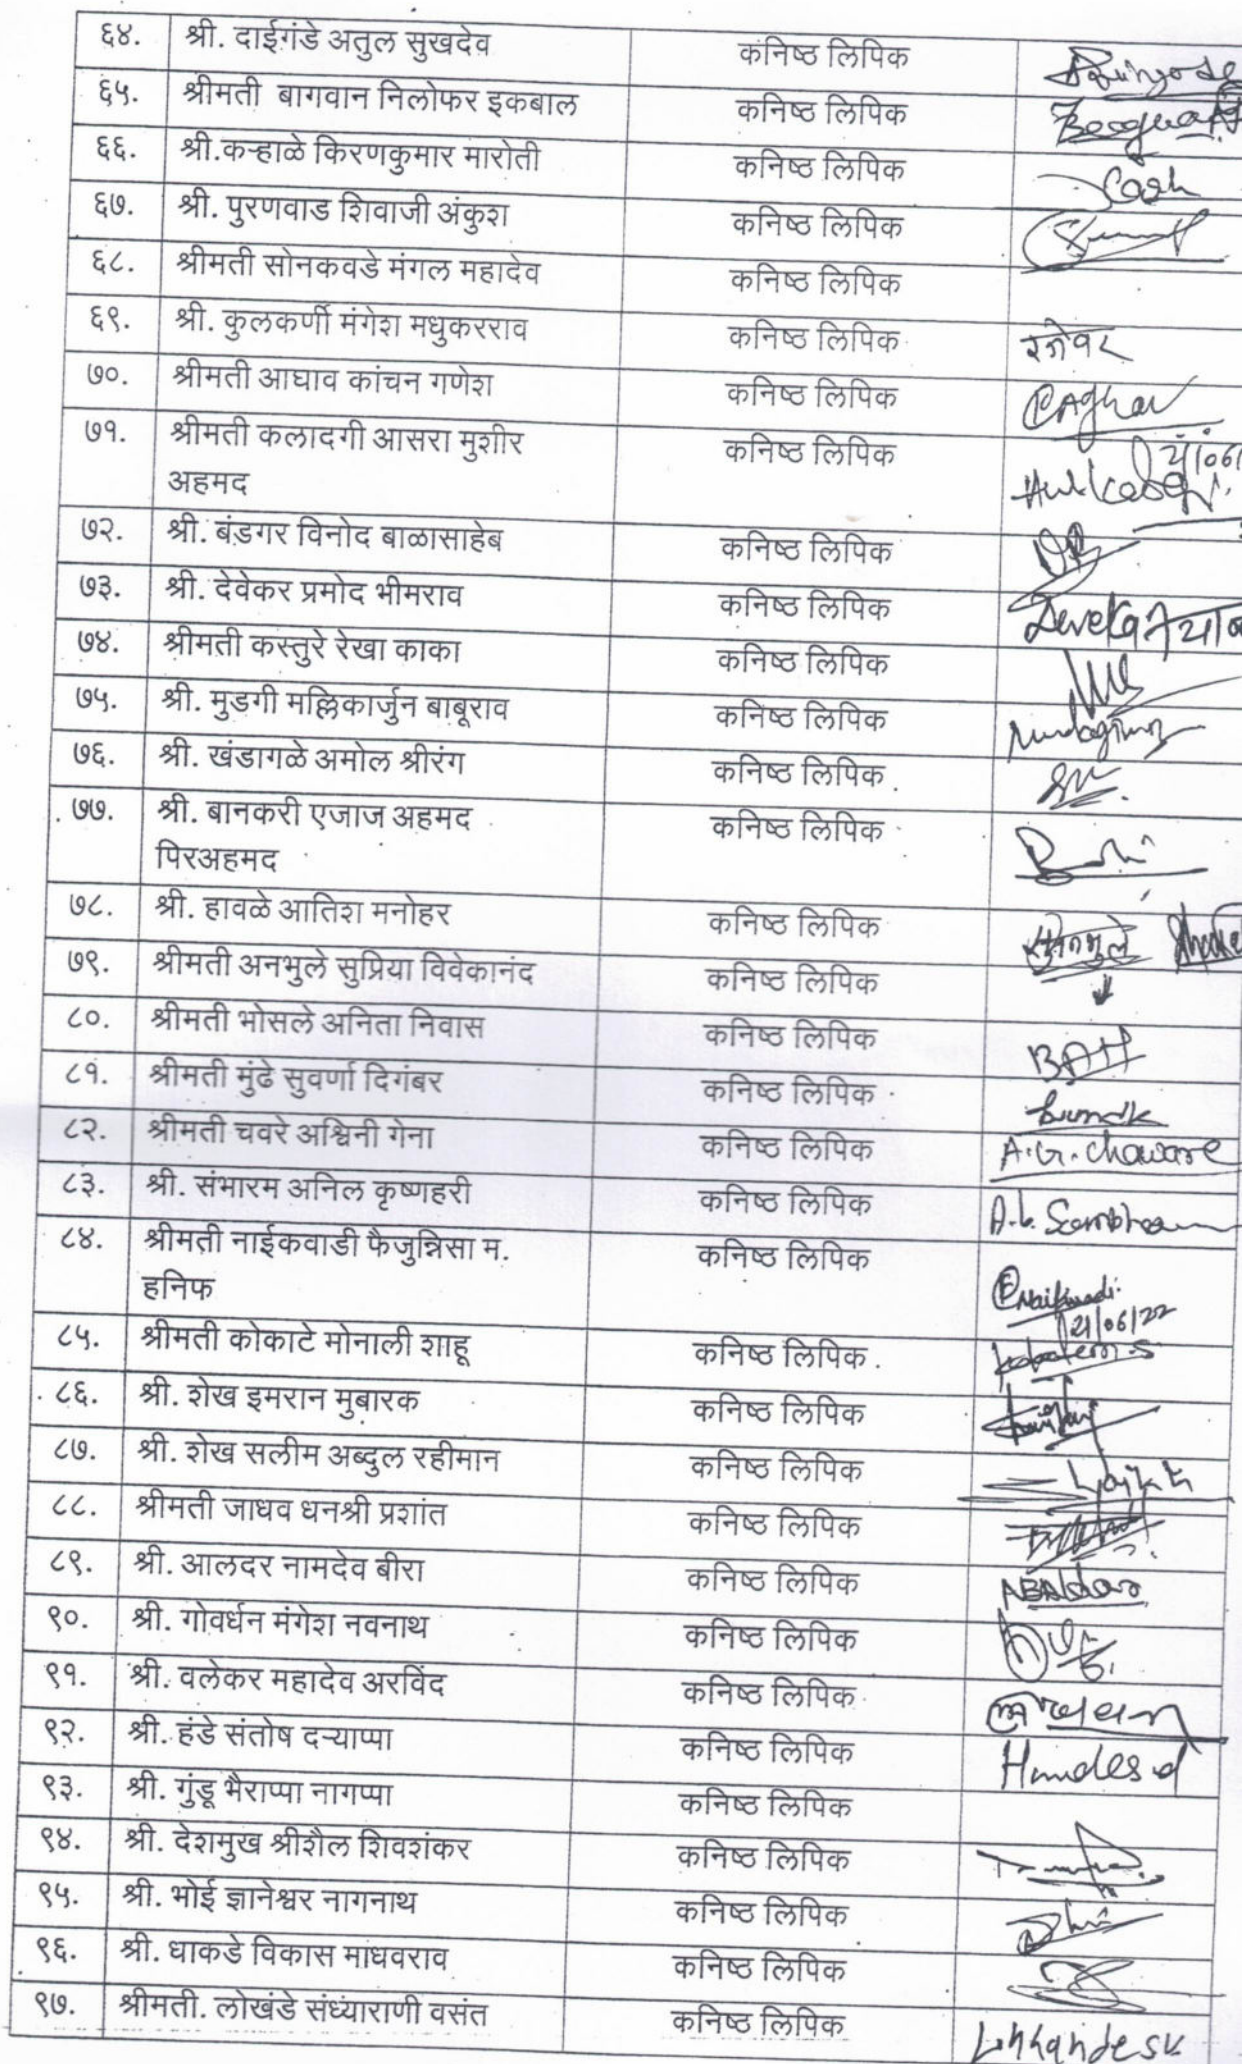 ६४. श्री. दाईगंडे अतुल सुखदेव कनिष्ठ लिपिक
६५. श्रीमती बागवान निलोफर इकबाल कनिष्ठ लिपिक
६६. श्री.कऱ्हाळे किरणकुमार मारोती कनिष्ठ लिपिक
६७. श्री. पुरणवाड शिवाजी अंकुश कनिष्ठ लिपिक
६८. श्रीमती सोनकवडे मंगल महादेव कनिष्ठ लिपिक
६९. श्री. कुलकर्णी मंगेश मधुकरराव कनिष्ठ लिपिक
७०. श्रीमती आघाव कांचन गणेश कनिष्ठ लिपिक
७१. श्रीमती कलादगी आसरा मुशीर कनिष्ठ लिपिक
अहमद
७२. श्री. बंडगर विनोद बाळासाहेब कनिष्ठ लिपिक
७३. श्री. देवेकर प्रमोद भीमराव कनिष्ठ लिपिक
७४. श्रीमती कस्तुरे रेखा काका कनिष्ठ लिपिक
७५. श्री. मुडगी मल्लिकार्जुन बाबूराव कनिष्ठ लिपिक
७६. श्री. खंडागळे अमोल श्रीरंग कनिष्ठ लिपिक
७७. श्री. बानकरी एजाज अहमद कनिष्ठ लिपिक
पिरअहमद
७८. श्री. हावळे आतिश मनोहर कनिष्ठ लिपिक
७९. श्रीमती अनभुले सुप्रिया विवेकानंद कनिष्ठ लिपिक
८०. श्रीमती भोसले अनिता निवास कनिष्ठ लिपिक
८१. श्रीमती मुंढे सुवर्णा दिगंबर कनिष्ठ लिपिक
८२. श्रीमती चवरे अश्विनी गेना कनिष्ठ लिपिक A.G. Chaware
८३. श्री. संभारम अनिल कृष्णहरी कनिष्ठ लिपिक
८४. श्रीमती नाईकवाडी फैजुन्निसा म. कनिष्ठ लिपिक
हनिफ Naikwadi 21/06/22
८५. श्रीमती कोकाटे मोनाली शाहू कनिष्ठ लिपिक
८६. श्री. शेख इमरान मुबारक कनिष्ठ लिपिक
८७. श्री. शेख सलीम अब्दुल रहीमान कनिष्ठ लिपिक
८८. श्रीमती जाधव धनश्री प्रशांत कनिष्ठ लिपिक
८९. श्री. आलदर नामदेव बीरा कनिष्ठ लिपिक
९०. श्री. गोवर्धन मंगेश नवनाथ कनिष्ठ लिपिक
९१. श्री. वलेकर महादेव अरविंद कनिष्ठ लिपिक
९२. श्री. हंडे संतोष दऱ्याप्पा कनिष्ठ लिपिक
९३. श्री. गुंडू भैराप्पा नागप्पा कनिष्ठ लिपिक
९४. श्री. देशमुख श्रीशैल शिवशंकर कनिष्ठ लिपिक
९५. श्री. भोई ज्ञानेश्वर नागनाथ कनिष्ठ लिपिक
९६. श्री. धाकडे विकास माधवराव कनिष्ठ लिपिक
९७. श्रीमती. लोखंडे संध्याराणी वसंत कनिष्ठ लिपिक